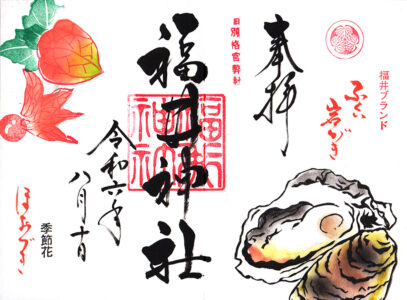 奉拝
福井ブランド
ふくい岩がき
旧別格官幣社
福井神社
令和六年
八月十日
季節花
ほおづき